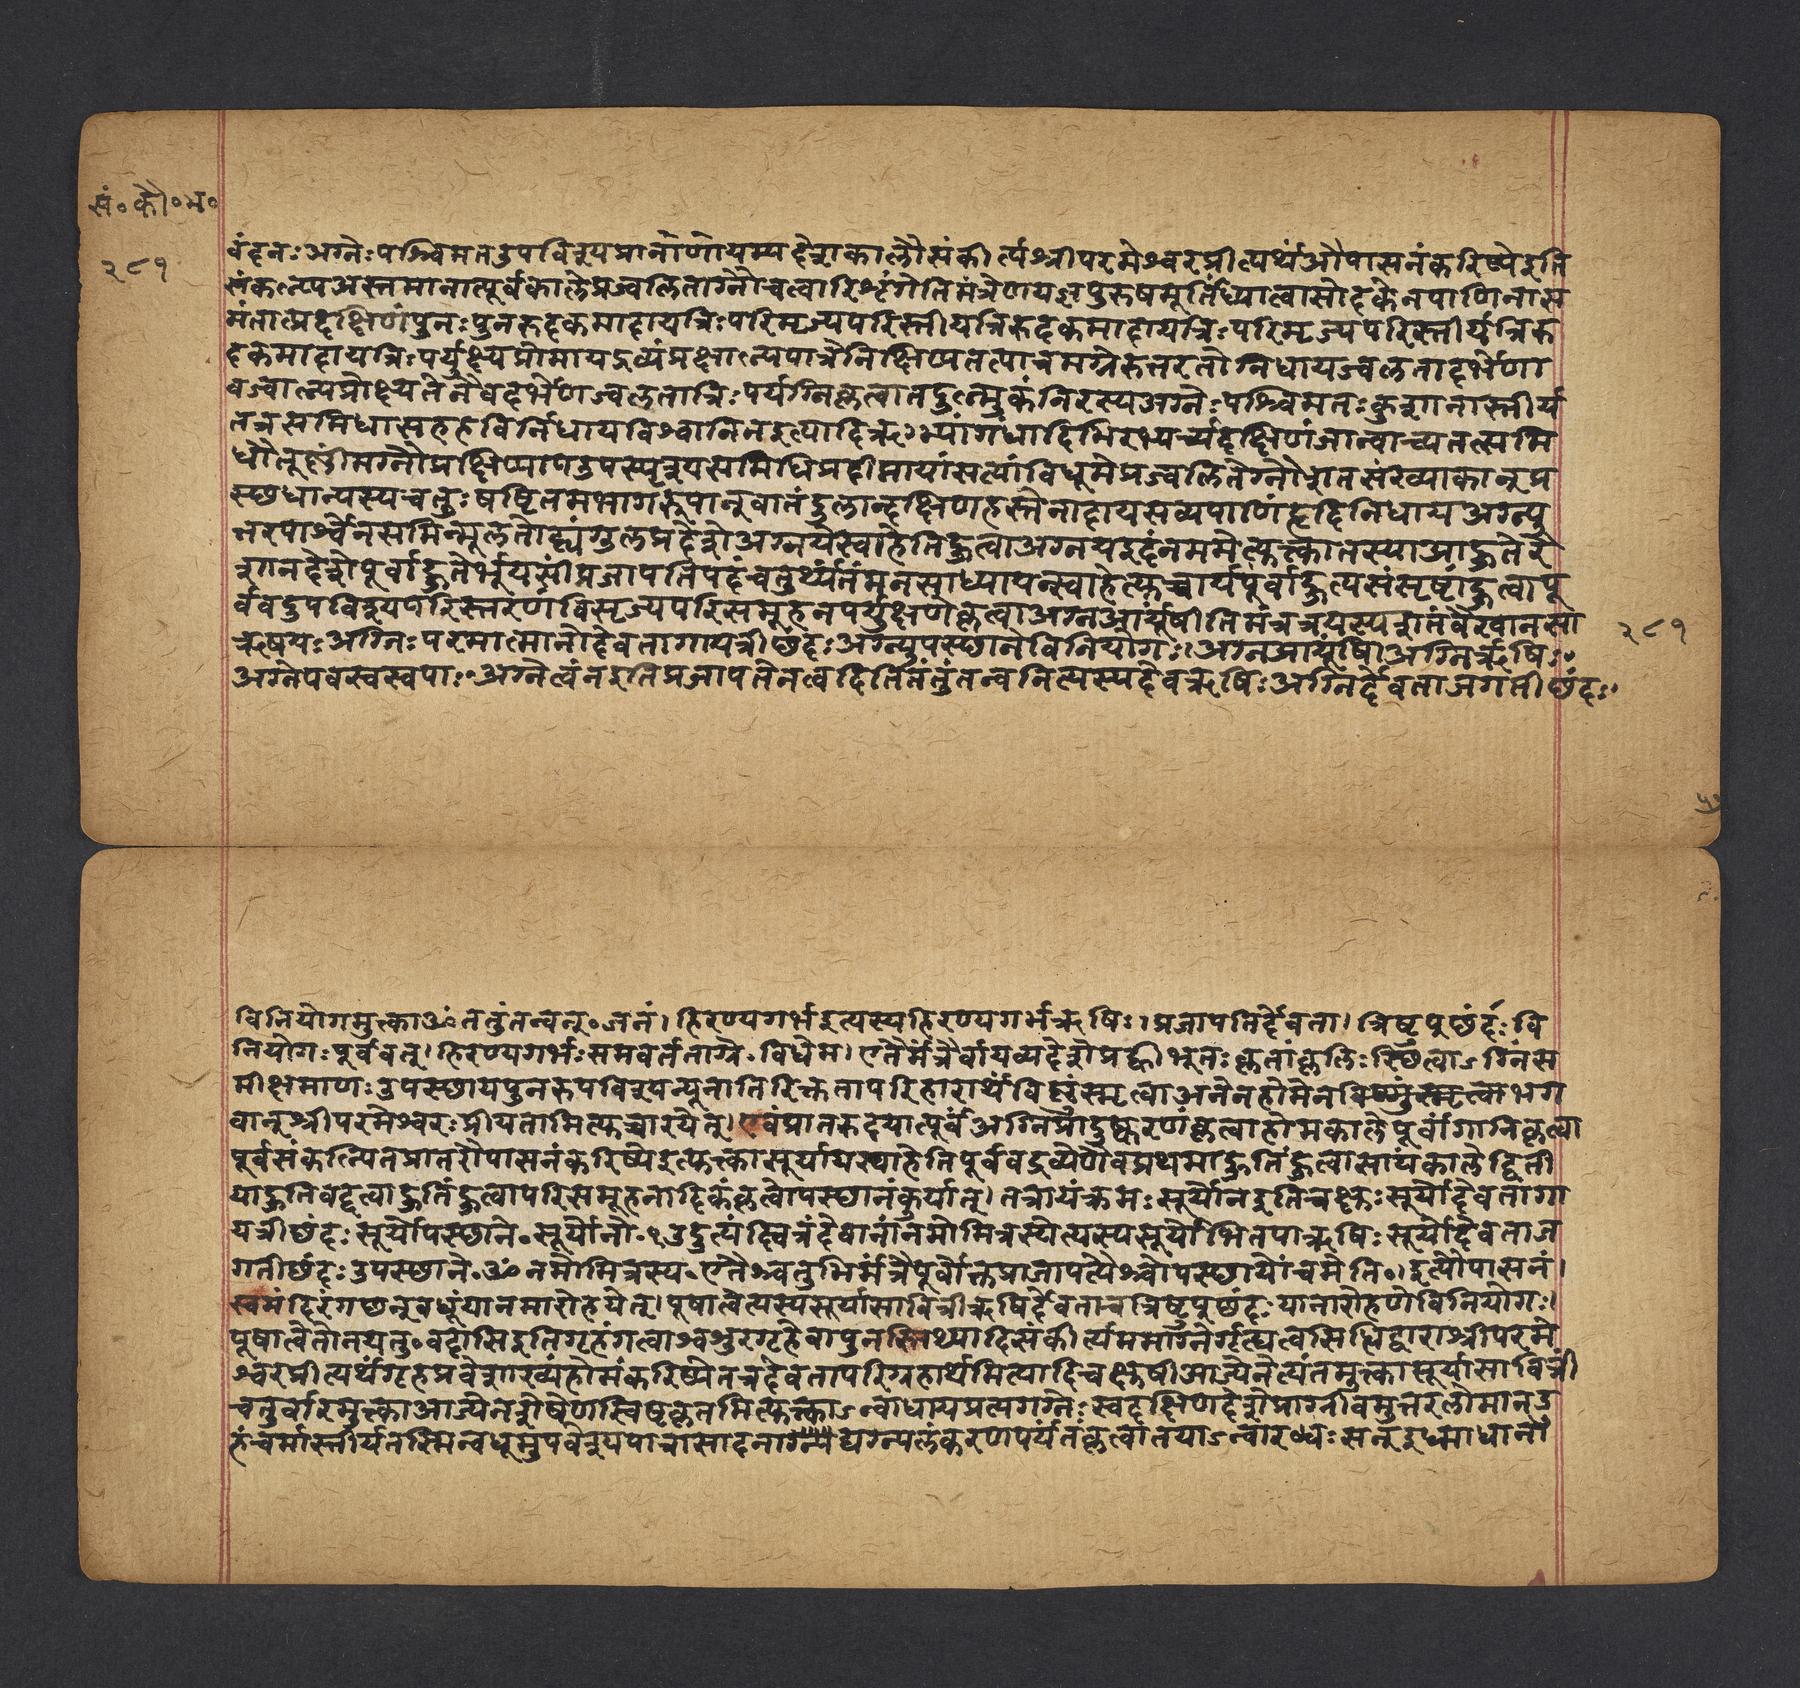 सं०कौ०भ०
२८१
वंदनः अग्नेः पश्चिमत उपविश्य प्राणानायम्य देशकालौ संकीर्त्य श्रीपरमेश्वरप्रीत्यर्थं औपासनं करिष्ये इति
संकल्प्य अस्तमानात्पूर्वकाले प्रज्वलिताग्नौ चत्वारिशृंगेति मंत्रेण यज्ञपुरुषमूर्तिं ध्यात्वा सोदकेन पाणिना स
मंतात्प्रदक्षिणं पुनः पुनरुदकमादाय त्रिः परिमृज्य परिस्तीर्य त्रिरुदकमादाय त्रिः परिमृज्य परिस्तीर्य त्रिरु
दकमादाय त्रिः पर्युक्ष्य होमायद्रव्यं प्रक्षाल्य पात्रे निक्षिप्य तत्पात्रमग्नेरुत्तरतो निधाय ज्वलता दर्भेणा
वज्वाल्य प्रोक्ष्य तेनैव दर्भेण ज्वलता त्रिः पर्यग्नि कृत्वा तदुल्मुकं निरस्य अग्नेः पश्चिमतः कुशानास्तीर्य
तत्र समिधा सह हविर्निधाय विश्वानिन इत्यादि ऋग्भ्यां गंधादिभिरभ्यर्च्य दक्षिणं जान्वाच्य तत्समि
धं तूष्णीमग्नौ प्रक्षिप्याप उपस्पृश्य समिधि प्रदीप्तायां सत्यां विधूमे प्रज्वलितेग्नौ शतसंख्याकान् प्र
स्छधान्यस्य चतुःषष्टितमभागरूपान्वा तंडुलान्दक्षिणहस्तेनादाय सव्यपाणिं हृदि निधाय अग्न्यु
त्तरपार्श्वेन समिन्मूलतो द्व्यंगुलप्रदेशे अग्नये स्वाहेति हुत्वा अग्नय इदं नममेत्युक्त्का तस्या आहुतेरै
शानदेशे पूर्वाहुतेर्भूयसीं प्रजापतिपदं चतुर्थ्यंतं मनसा ध्यायन् स्वाहेत्युच्चार्य पूर्वाहुत्यसंसृष्टां हुत्वा पू
र्ववदुपविश्य परिस्तरणं विसृज्य परिसमूहनपर्युक्षणे कृत्वा अग्न आयूंषीति मंत्रत्रयस्य शतं वैखानसा
ऋषयः अग्निः परमात्मानो देवता गायत्री छंदः अग्न्युपस्छाने विनियोगः। अग्न आयूंषि। अग्निर्ऋषिः॰
अग्ने पवस्वस्वपाः॰ अग्ने त्वंन इति प्रजापते नत्वदिति तंतुं तन्वन्नित्यस्य देव ऋषिः अग्निर्देवता जगती छंदः।
२८१
विनियोगमुक्त्का ॐ तंतुं तन्वन्॰ जनं। हिरण्यगर्भ इत्यस्य हिरण्यगर्भ ऋषिः। प्रजापतिर्देवता। त्रिष्टुप्छंदः वि
नियोगः पूर्ववत्। हिरण्यगर्भः समवर्तताग्रे॰ विधेम। एतैर्मंत्रैर्वायव्यदेशे प्रह्वीभूतः कृतांजलिः स्छित्वाऽग्निं स
मीक्षमाणः उपस्छाय पुनरुपविश्य न्यूनातिरिक्तता परिहारार्थं विष्णुं स्मृत्वा अनेन होमेन भग
वान् श्रीपरमेश्वरः प्रीयतामित्युच्चारयेत्। एवं प्रातरुदयात्पूर्वं अग्निप्रादुष्करणं कृत्वा होमकाले पूर्वांगानि कृत्वा
पूर्वसंकल्पितप्रातरौपासनं करिष्ये इत्युक्त्का सूर्याय स्वाहेति पूर्ववद्द्रव्येणैव प्रथमाहुतिं हुत्वा सायंकाले द्विती
याहुतिवद्द्वितीयाहुतिं हुत्वा परिसमूहनादिकं कृत्वोपस्छानं कुर्यात्। तत्रायं क्रमः सूर्योन इति चक्षुः सूर्यो देवता गा
यत्री छंदः सूर्योपस्छाने॰ सूर्योनो॰ १ उदुत्यं चित्रं देवानां नमो मित्रस्येत्यस्य सूर्योभितपा ऋषिः सूर्यो देवता ज
गती छंदः उपस्छाने॰ ॐ नमो मित्रस्य॰ एतैश्चतुर्भिर्मंत्रैः पूर्वोक्तप्राजापत्यैश्चोपस्छायोंचमेति॰। इत्यौपासनं।
स्वमंदिरं गछन् वधूं यानमारोहयेत्। पूषात्वेत्यस्य सूर्यासावित्री ऋषिर्देवता च त्रिष्टुप्छंदः यानारोहणे विनियोगः।
पूषात्वेतो नयतु॰ वदासि इति गृहं गत्वा श्वशुरगृहे वा पुनस्तिथ्यादि संकीर्त्य ममाग्नेर्गृह्यत्वसिद्धिद्वारा श्रीपरमे
श्वरप्रीत्यर्थं गृहप्रवेशाख्यं होमं करिष्ये तत्र देवतापरिग्रहार्थमित्यादि चक्षुषी आज्येनेत्यंतमुक्त्का सूर्यासावित्रीं
चतुर्वारमुक्त्का आज्येन शेषेण स्विष्टकृतमित्युक्त्काऽन्वाधाय प्रत्यगग्नेः स्वदक्षिणदेशे प्राग्ग्रीवमुत्तरलोमानडु
हं चर्मास्तीर्य तस्मिन्वधूमुपवेश्य पात्रासादनाद्यग्न्यलंकरणपर्यंतं कृत्वा तयाऽन्वारब्धः सन् इध्माधानां